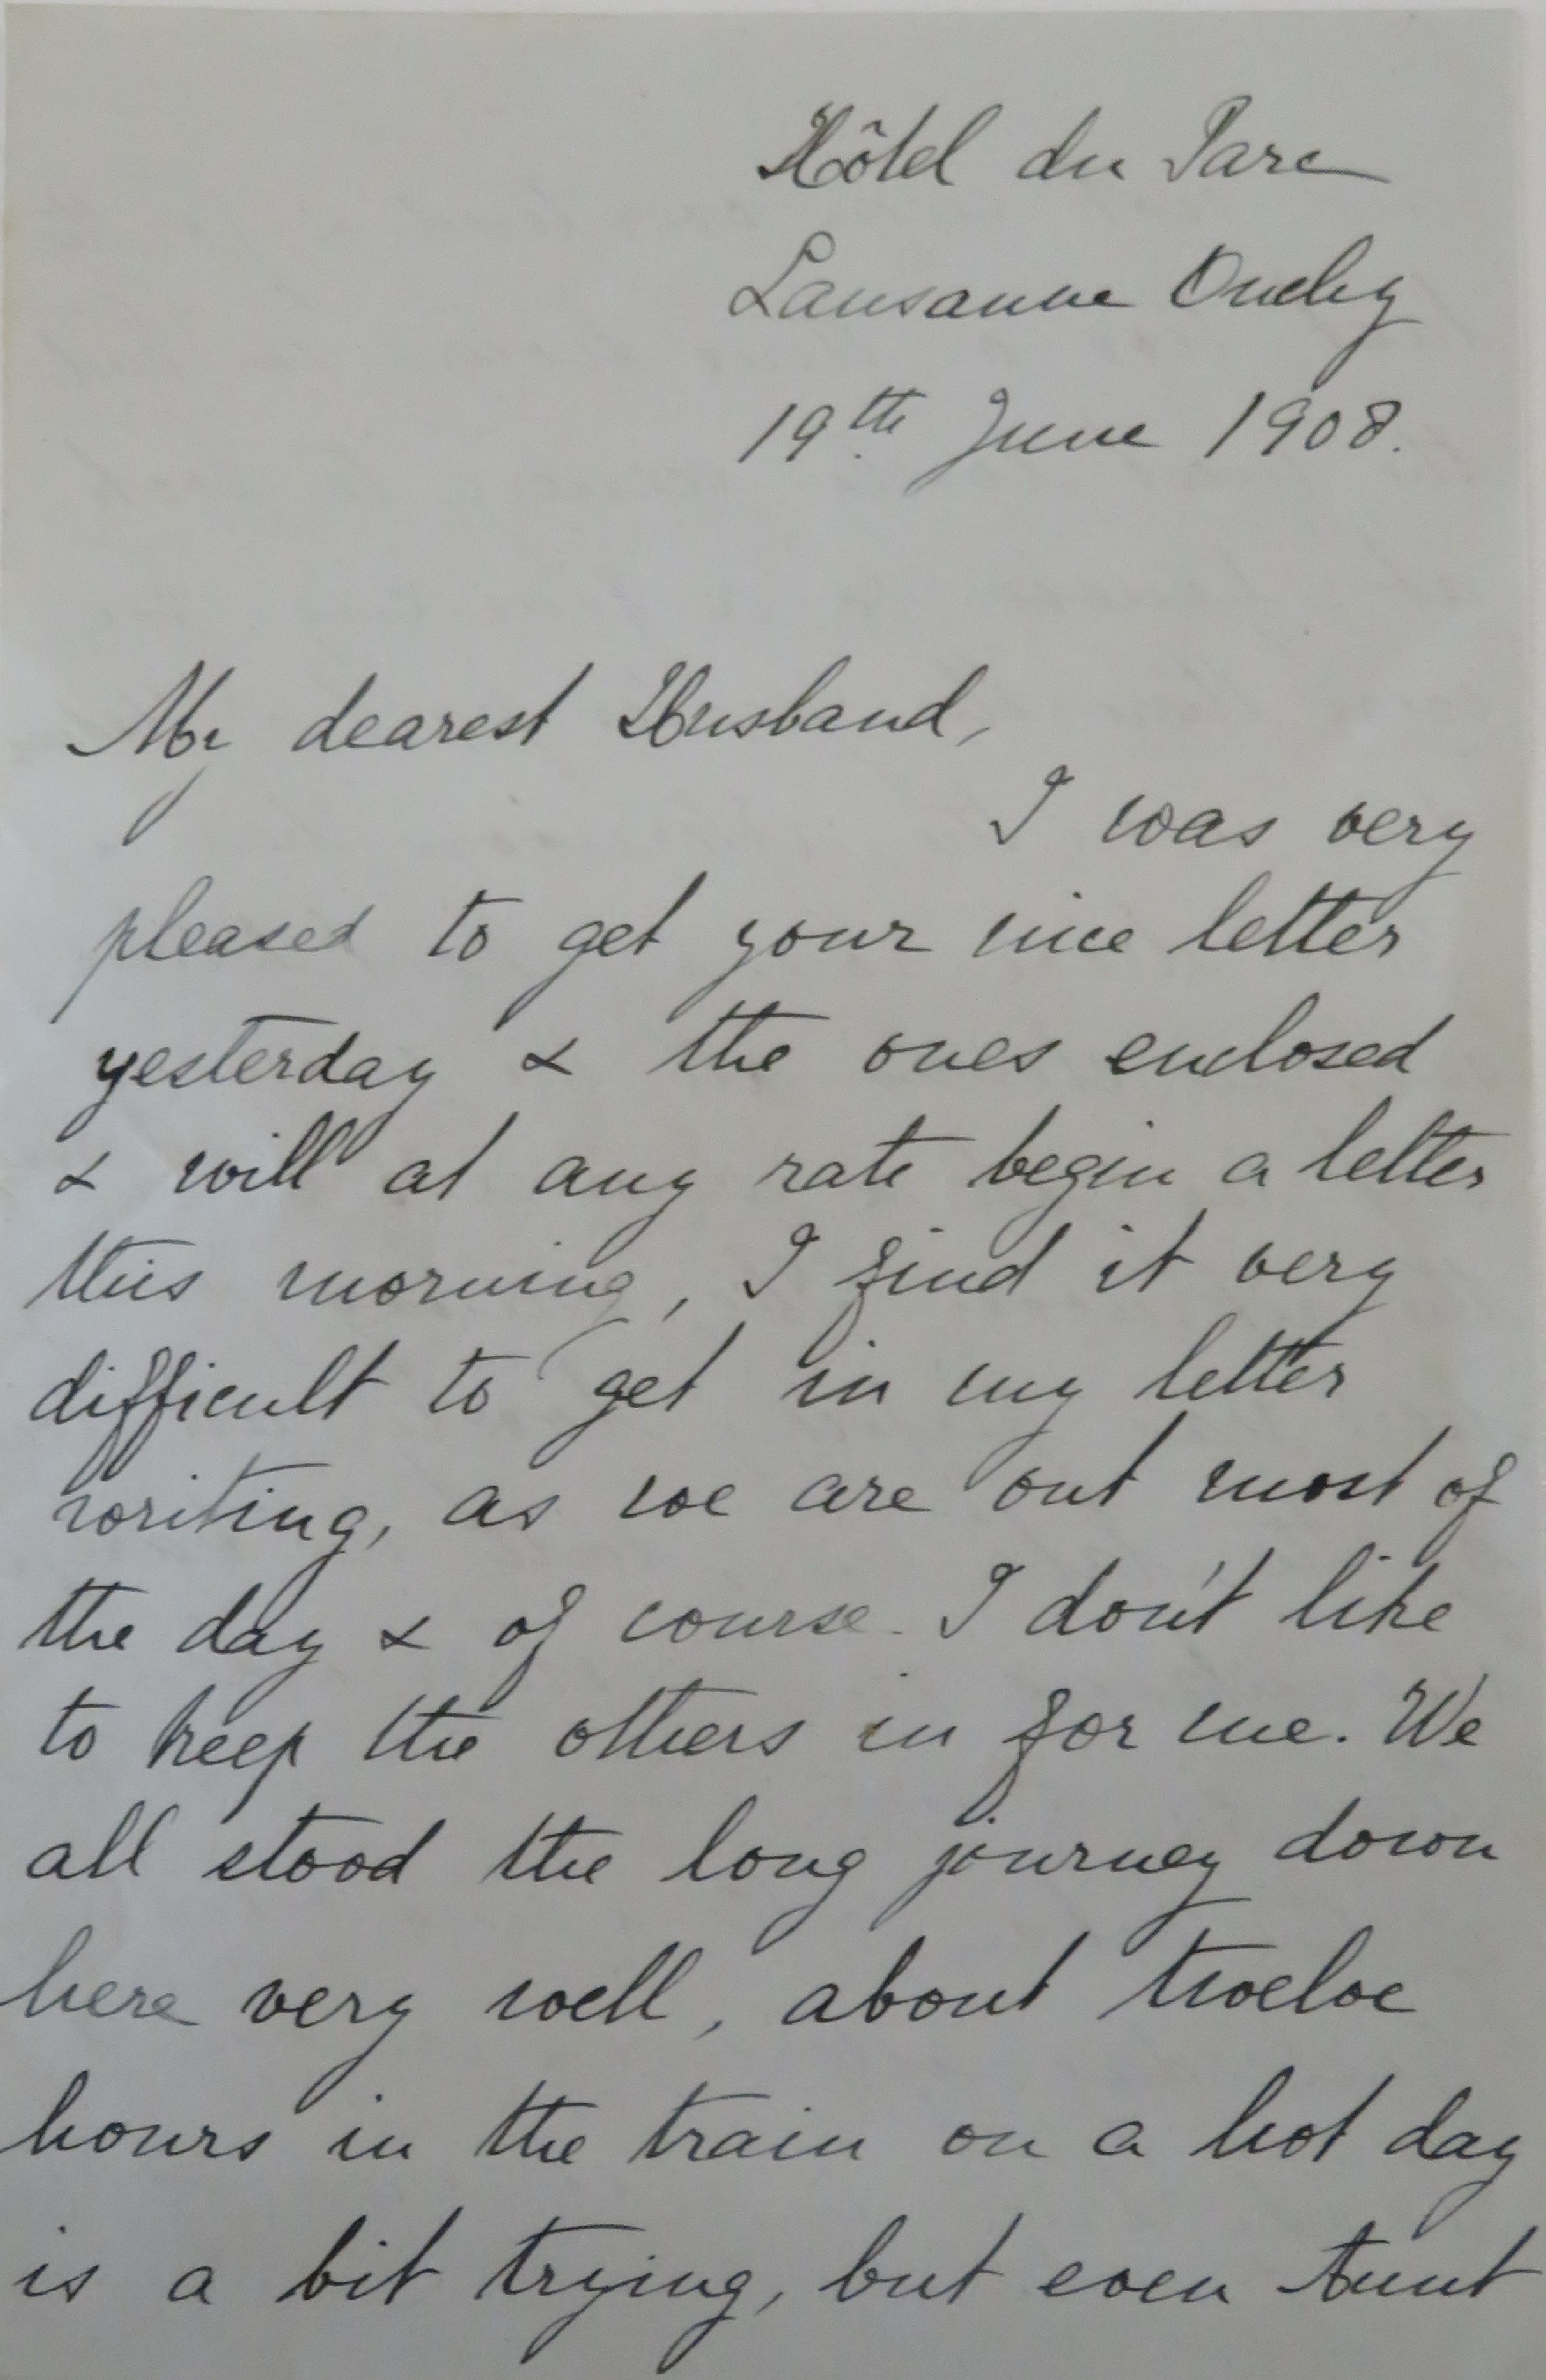 Hôtel du Parc
Lausanne Ouchy
19th June 1908.
My dearest Husband,
I was very
pleased to get your nice letter
yesterday & the ones enclosed
& will at any rate begin a letter
this morning, I find it very
difficult to get in my letter
writing, as we are out most of
the day & of course I don't like
to keep the others in for me. We
all stood the long journey down
here very well, about twelve
hours in the train on a hot day
is a bit trying, but even Aunt